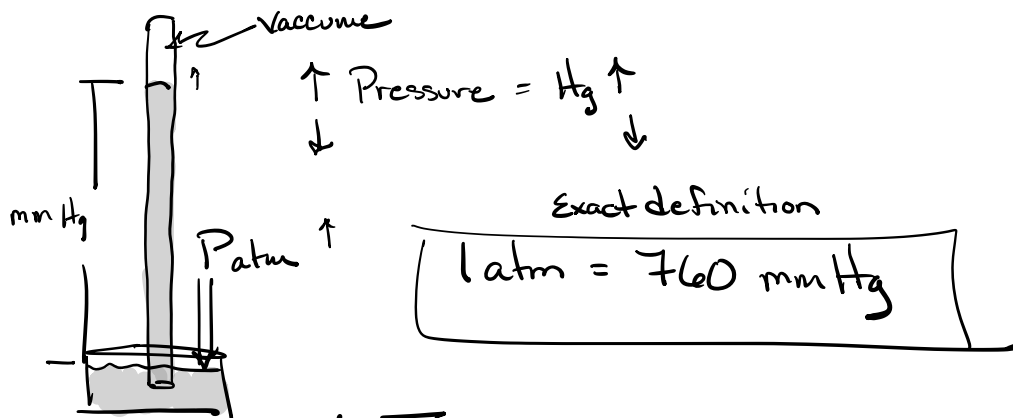 Vaccume
↑ Pressure = Hg ↑
↓ ↓
mm Hg
Patm ↑
Exact definition
1 atm = 760 mm Hg